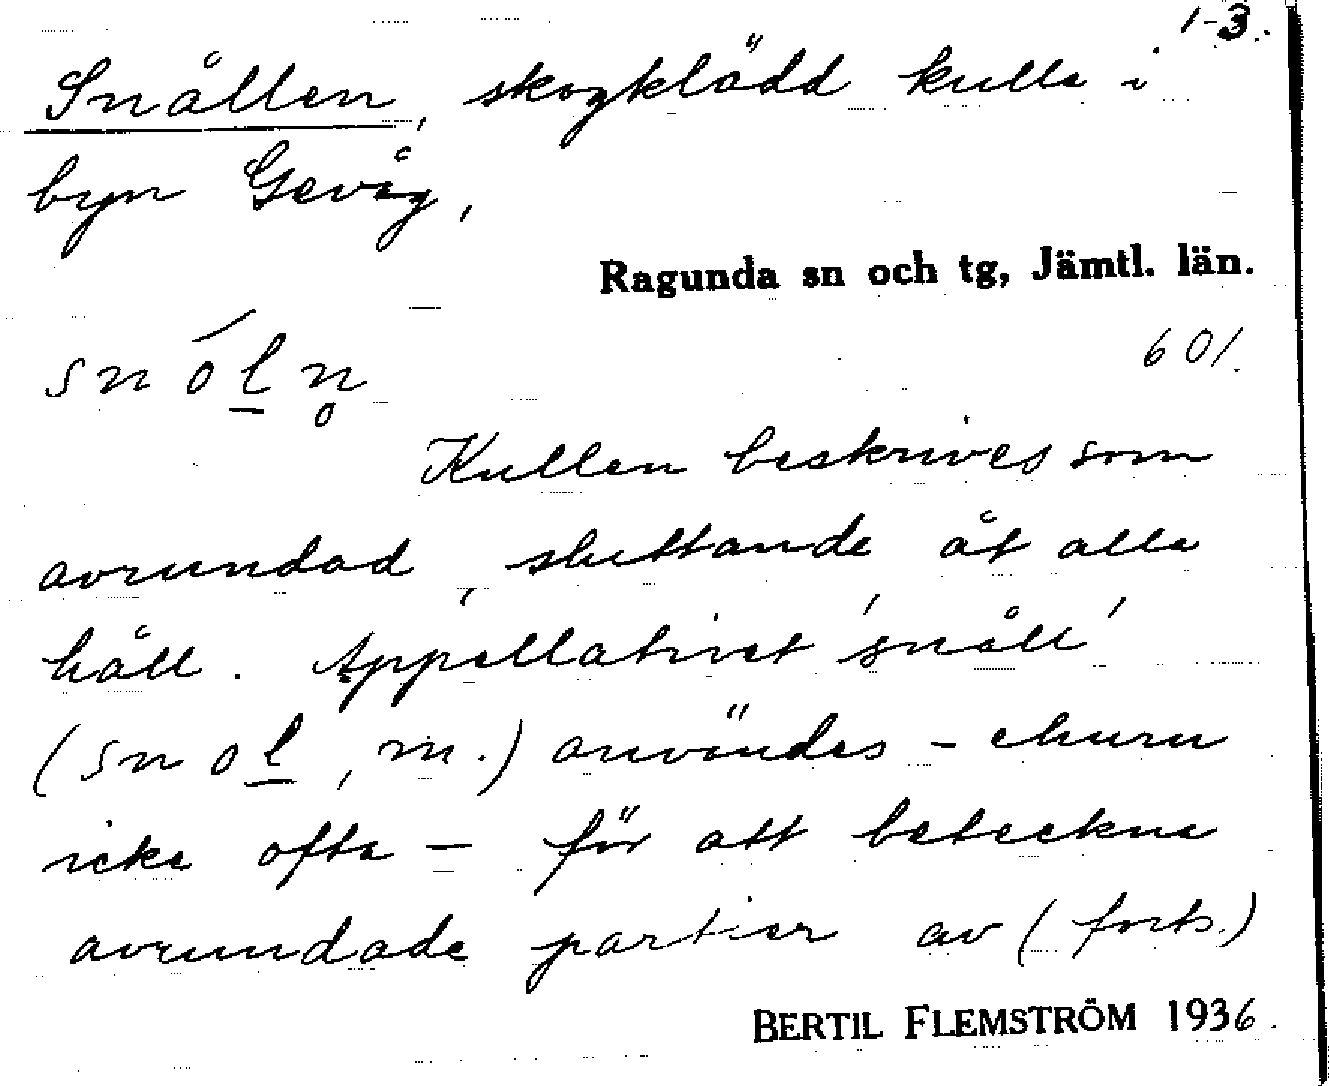 1-3.
Snållen, skogklädd kulle i
byn Gevåg,
Ragunda sn och tg, Jämtl. län.
snól̲n̥
601.
Kullen beskrives som
avrundad, sluttande åt alla
håll. Appellativet 'snåll'
(snol̲, m.) användes - ehuru
icke ofta - för att beteckna
avrundade partier av (forts.)
BERTIL FLEMSTRÖM 1936.